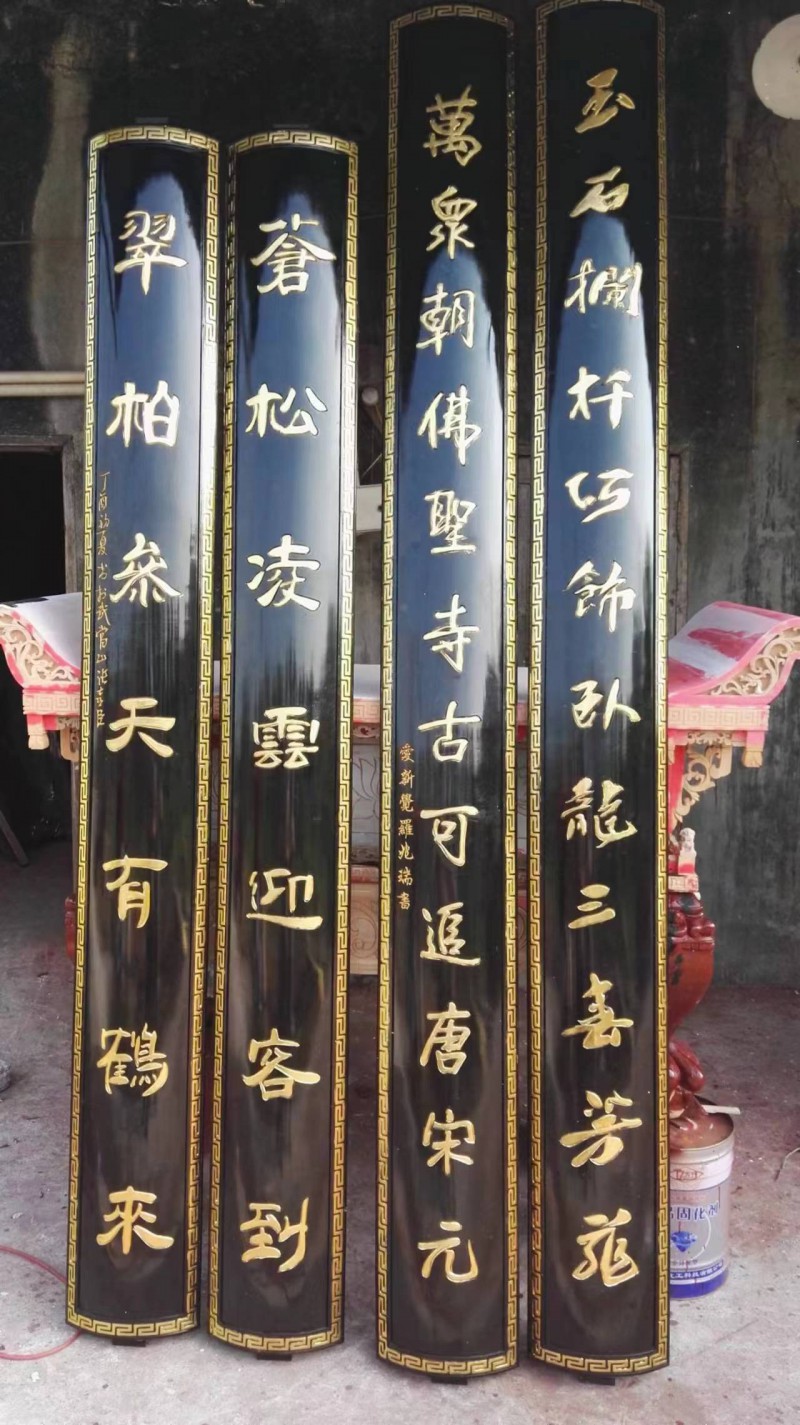 玉石欄杆巧飾臥龍三春芳菲
萬眾朝佛聖寺古可追唐宋元
愛新覺羅兆瑞書
蒼松凌雲迎客到
翠柏參天有鶴來
丁酉初夏
固化剂